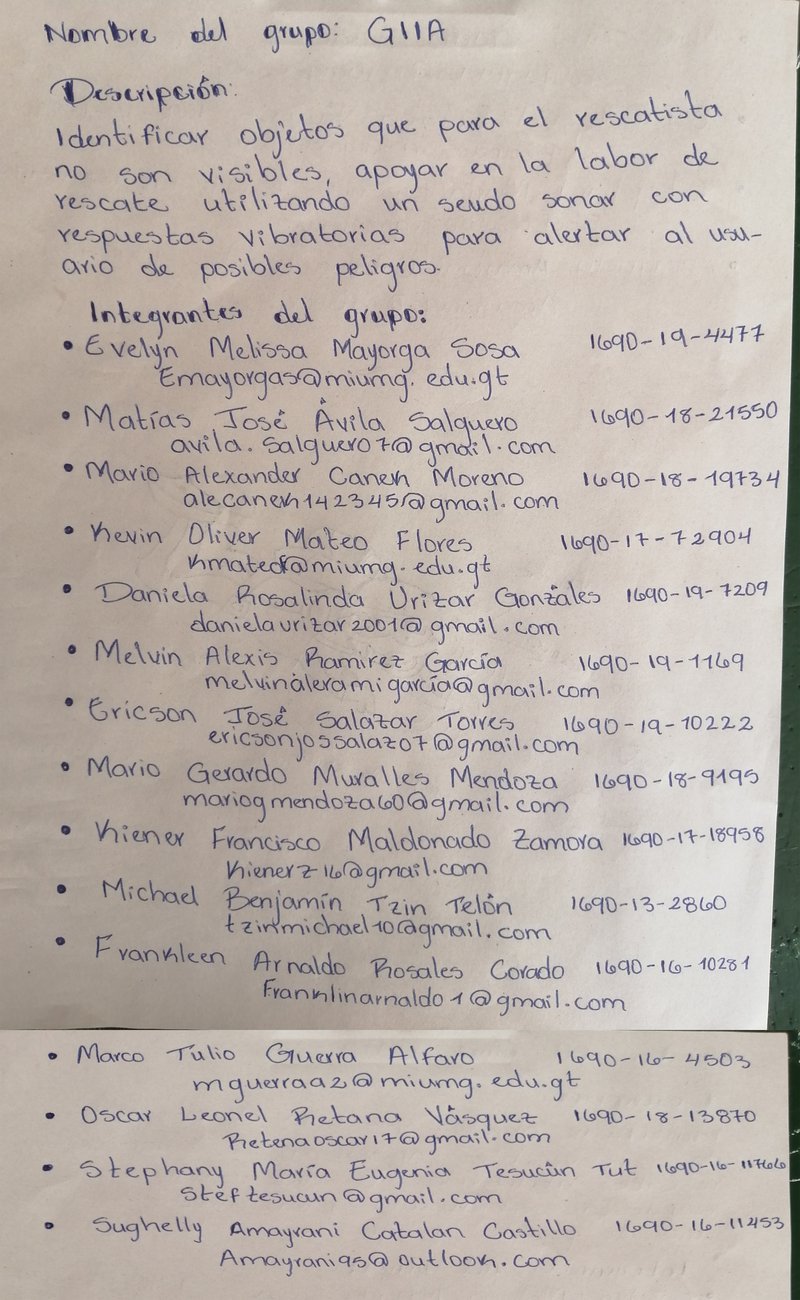 Nombre del grupo: GIIA
Descripción:
Identificar objetos que para el rescatista
no son visibles, apoyar en la labor de
rescate utilizando un seudo sonar con
respuestas vibratorias para alertar al usu-
ario de posibles peligros.
Integrantes del grupo:
• Evelyn Melissa Mayorga Sosa 1690-19-4477
Emayorgas@miumg.edu.gt
• Matías José Ávila Salguero 1690-18-21550
avila.salguero7@gmail.com
• Mario Alexander Canek Moreno 1690-18-19734
alecanek142345@gmail.com
• Kevin Oliver Mateo Flores 1690-17-72904
kmateof@miumg.edu.gt
• Daniela Rosalinda Urizar Gonzáles 1690-19-7209
danielaurizar2001@gmail.com
• Melvin Alexis Ramirez García 1690-19-1169
melvinaleramigarcía@gmail.com
• Ericson José Salazar Torres 1690-19-10222
ericsonjossalaz07@gmail.com
• Mario Gerardo Muralles Mendoza 1690-18-9195
mariogmendoza60@gmail.com
• Kiener Francisco Maldonado Zamora 1690-17-18958
kienerz16@gmail.com
• Michael Benjamín Tzin Telón 1690-13-2860
tzinmichael10@gmail.com
• Frankleen Arnaldo Rosales Corado 1690-16-10281
Franklinarnaldo1@gmail.com
• Marco Tulio Guerra Alfaro 1690-16-4503
mguerraa2@miumg.edu.gt
• Oscar Leonel Retana Vásquez 1690-18-13870
Retenaoscar17@gmail.com
• Stephany María Eugenia Tesucún Tut 1690-16-11766
steftesucun@gmail.com
• Sughelly Amayrani Catalan Castillo 1690-16-11453
Amayrani95@outlook.com